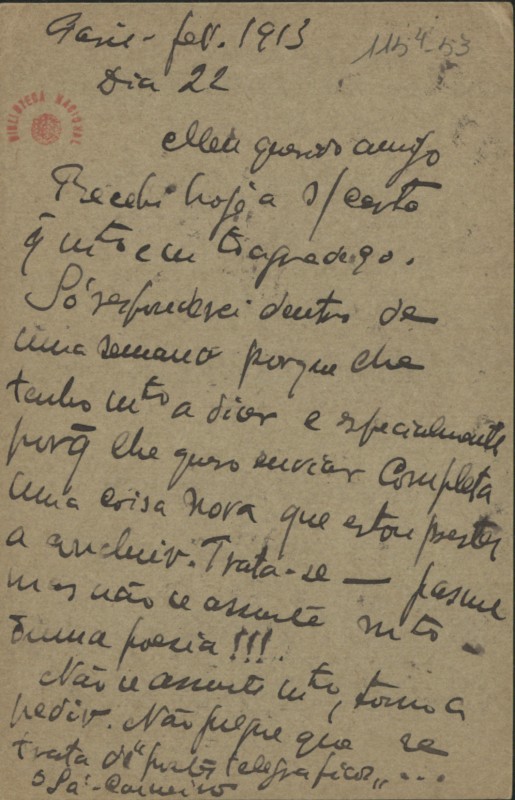 Paris - fev. 1913
115⁴-53
Dia 22
BIBLIOTECA NACIONAL
Meu querido amigo
Recebi hoje a s/ carta
q̄ mto e mto agradeço.
Só responderei dentro de
uma semana porque lhe
tenho mto a dizer e especialmente
porq̄ lhe quero enviar completa
uma coisa nova que estou prestes
a concluir. Trata-se — pasme
mas não se assuste mto -
duma poesia!!!.
Não se assuste mto, torno a
pedir. Não julgue que se
trata de "postes telegraficos" ...
o Sá-Carneiro